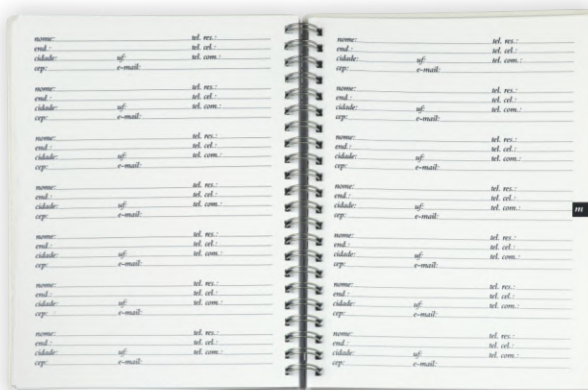 nome: tel. res.:
end.: tel. cel.:
cidade: uf: tel. com.:
cep: e-mail:
nome: tel. res.:
end.: tel. cel.:
cidade: uf: tel. com.:
cep: e-mail:
nome: tel. res.:
end.: tel. cel.:
cidade: uf: tel. com.:
cep: e-mail:
nome: tel. res.:
end.: tel. cel.:
cidade: uf: tel. com.:
cep: e-mail:
nome: tel. res.:
end.: tel. cel.:
cidade: uf: tel. com.:
cep: e-mail:
nome: tel. res.:
end.: tel. cel.:
cidade: uf: tel. com.:
cep: e-mail:
nome: tel. res.:
end.: tel. cel.:
cidade: uf: tel. com.:
cep: e-mail:
nome: tel. res.:
end.: tel. cel.:
cidade: uf: tel. com.:
cep: e-mail:
nome: tel. res.:
end.: tel. cel.:
cidade: uf: tel. com.:
cep: e-mail:
nome: tel. res.:
end.: tel. cel.:
cidade: uf: tel. com.:
cep: e-mail:
nome: tel. res.:
end.: tel. cel.:
cidade: uf: tel. com.:
cep: e-mail:
m
nome: tel. res.:
end.: tel. cel.:
cidade: uf: tel. com.:
cep: e-mail:
nome: tel. res.:
end.: tel. cel.:
cidade: uf: tel. com.:
cep: e-mail:
nome: tel. res.:
end.: tel. cel.:
cidade: uf: tel. com.:
cep: e-mail: